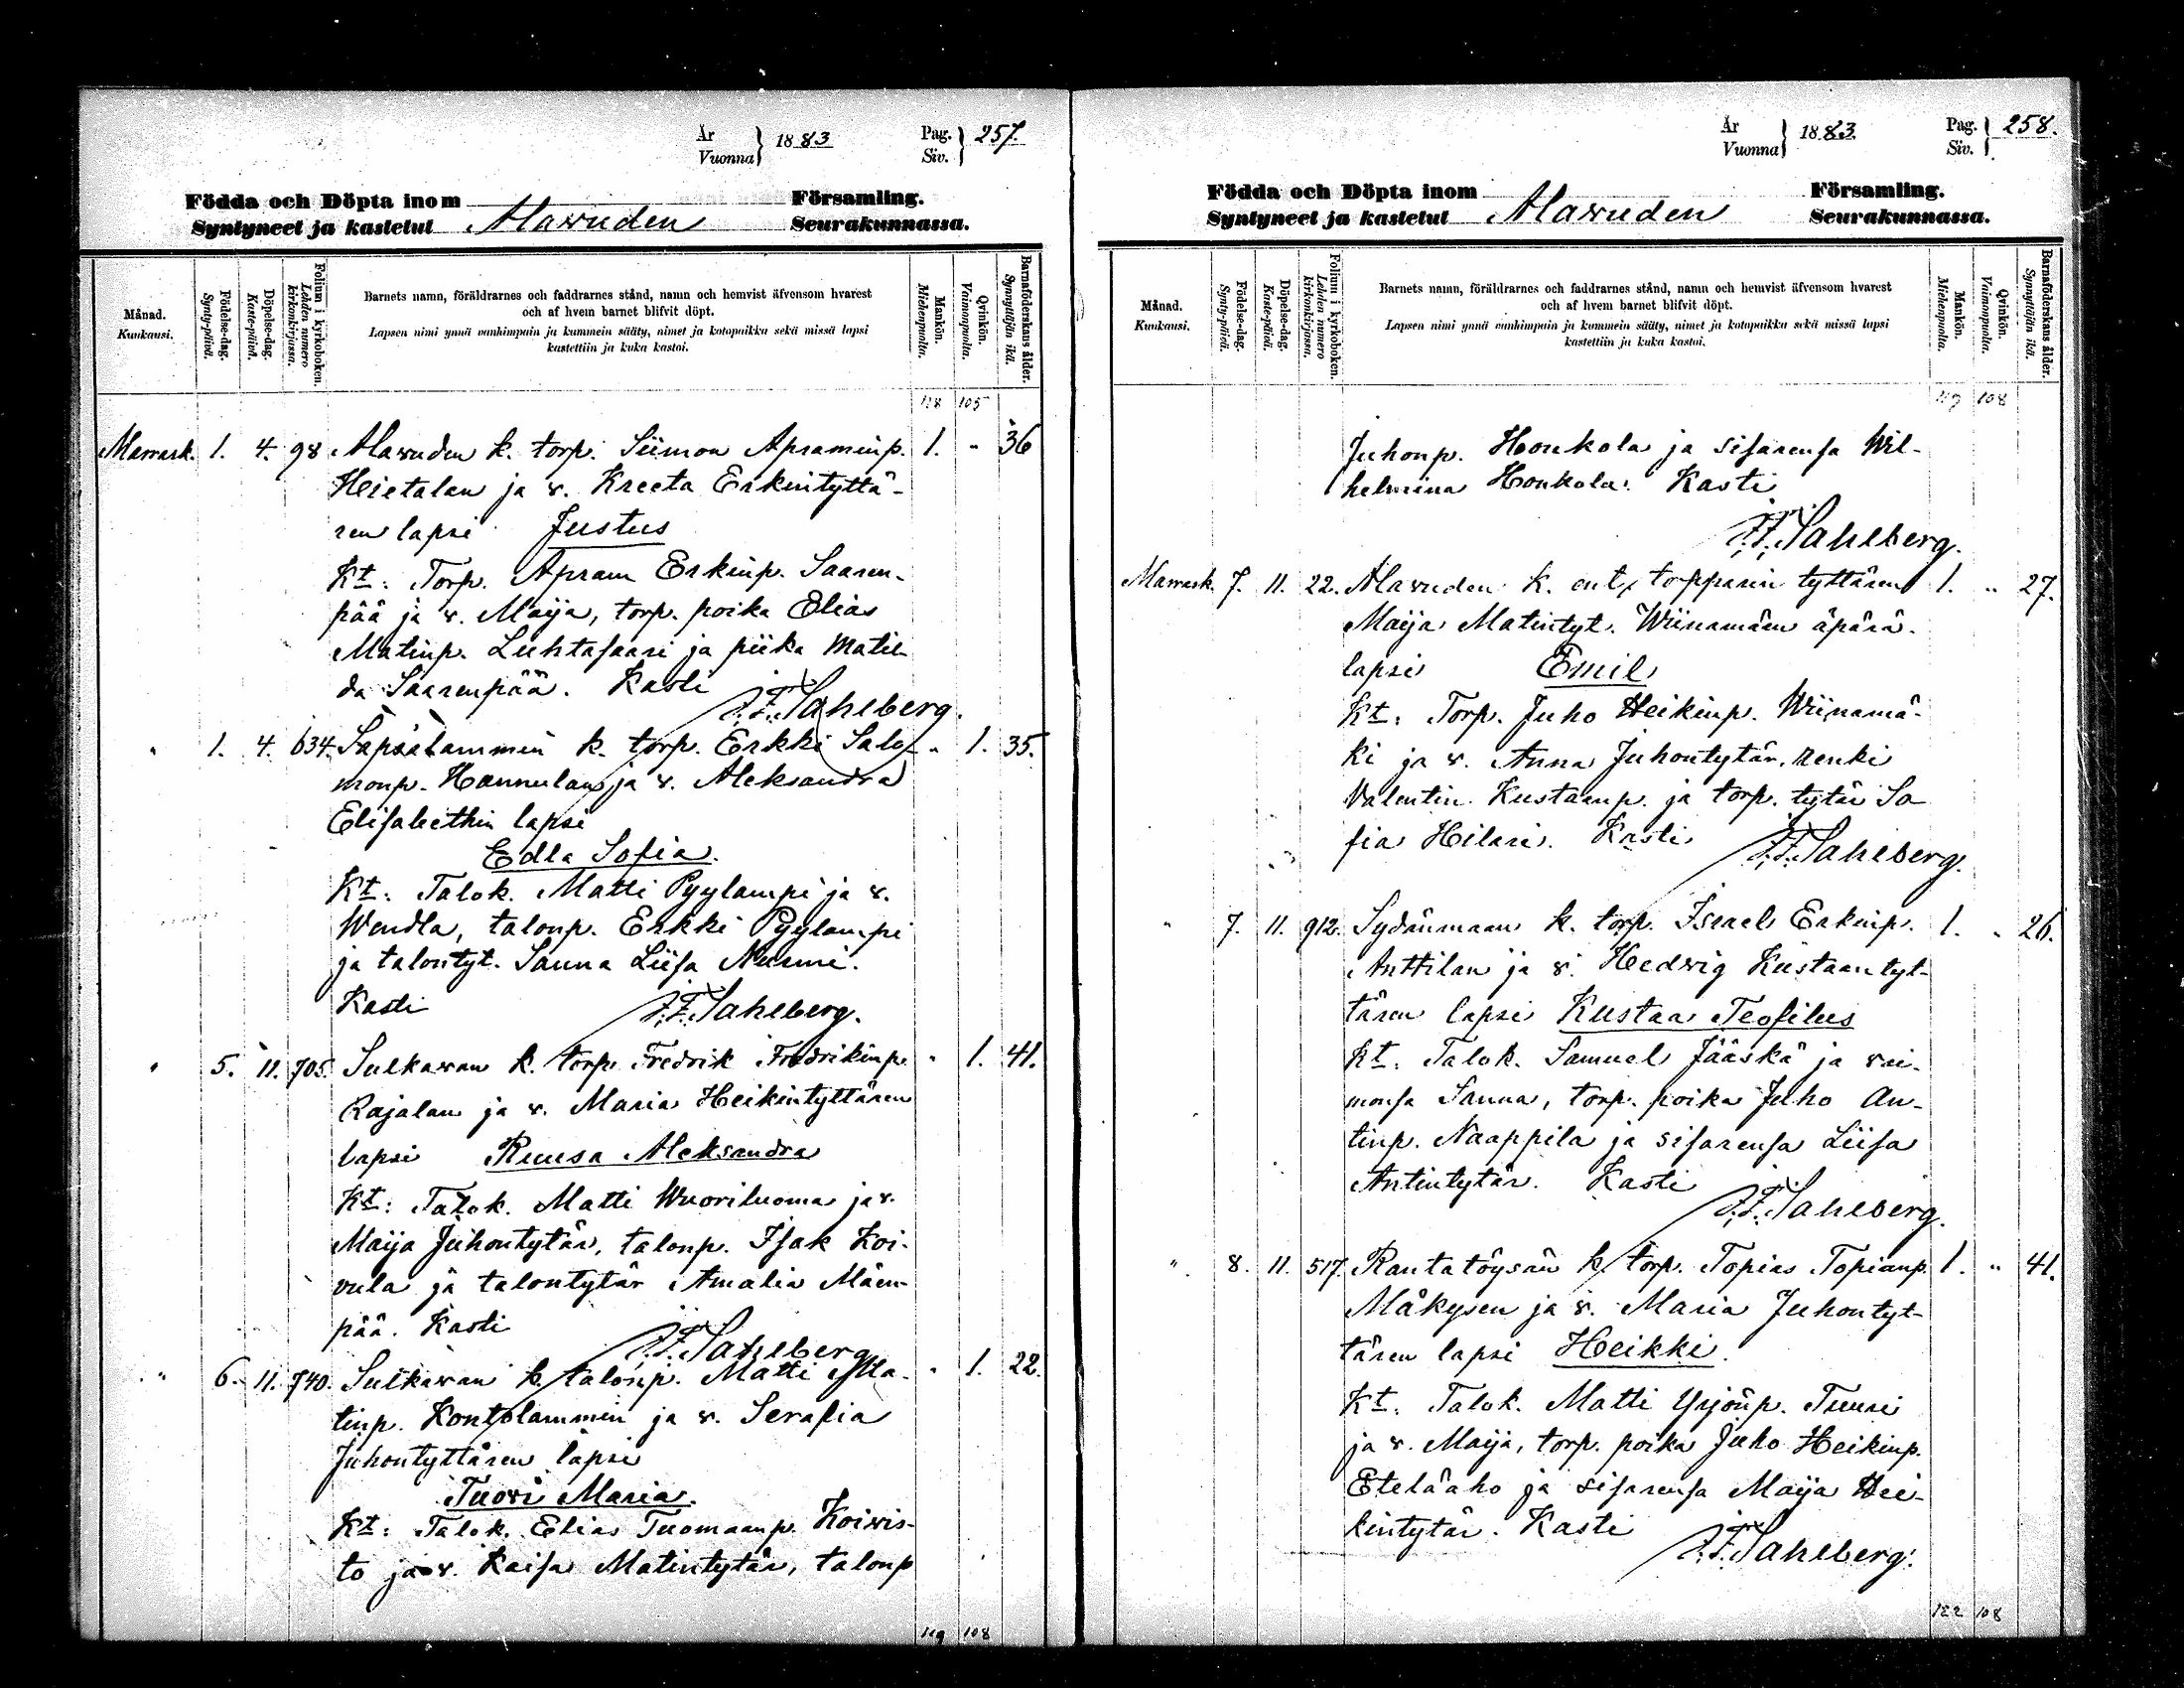 År
Vuonna } 1883
Pag.
Siv. } 257.
Födda och Döpta inom Församling.
Syntyneet ja kastetut Alavuden Seurakunnassa.
Månad.
Kuukausi.
Födelse-dag.
Synty-päivä.
Döpelse-dag.
Kaste-päivä.
Folium i kyrkoboken.
Lehden numero kirkonkirjassa.
Barnets namn, föräldrarnes och faddrarnes stånd, namn och hemvist äfvensom hvarest
och af hvem barnet blifvit döpt.
Lapsen nimi ynnä vanhimpain ja kummein sääty, nimet ja kotopaikka sekä missä lapsi
kastettiin ja kuka kastoi.
Mankön.
Miehenpuolta.
Qvinkön.
Vaimonpuolta.
Barnaföderskans ålder.
Synnyttäjän ikä.
118 105
Marrask. 1. 4. 98 Alavuden k. torp. Siimon Apraminp. 1. " 36
Hietalan ja v. Kreeta Erkintyttä-
ren lapsi Justus
Kt: Torp. Apram Erkinp. Saaren-
pää ja v. Maija, torp. poika Elias
Matinp. Luhtasaari ja piika Matil-
da Saarenpää. Kasti
J. F. Sahlberg.
" 1. 4. 634. Sapsalammin k. torp. Erkki Salo- " 1. 35.
monp. Hannulan ja v. Aleksandra
Elisabethin lapsi
Edla Sofia.
Kt: Talok. Matti Pyylampi ja v.
Wendla, talonp. Erkki Pyylampi
ja talontyt. Sanna Liisa Nurmi.
Kasti J. F. Sahlberg.
" 5. 11. 705. Sulkavan k. torp. Fredrik Fredrikinp. " 1. 41.
Rajalan ja v. Maria Heikintyttären
lapsi Ruusa Aleksandra
Kt: Talok. Matti Wuoriluoma ja v.
Maija Juhontytär, talonp. Isak Koi-
vula ja talontytär Amalia Mäen-
pää. Kasti
J. F. Sahlberg
" 6. 11. 740. Sulkavan k. talonp. Matti Ma- " 1. 22.
tinp. Kontolammin ja v. Serafia
Juhontyttären lapsi
Tuovi Maria.
Kt: Talok. Elias Tuomaanp. Koivis-
to ja v. Kaisa Matintytär, talonp
119 108
År
Vuonna } 1883.
Pag.
Siv. } 258.
Födda och Döpta inom Församling.
Syntyneet ja kastetut Alavuden Seurakunnassa.
Månad.
Kuukausi.
Födelse-dag.
Synty-päivä.
Döpelse-dag.
Kaste-päivä.
Folium i kyrkoboken.
Lehden numero kirkonkirjassa.
Barnets namn, föräldrarnes och faddrarnes stånd, namn och hemvist äfvensom hvarest
och af hvem barnet blifvit döpt.
Lapsen nimi ynnä vanhimpain ja kummein sääty, nimet ja kotopaikka sekä missä lapsi
kastettiin ja kuka kastoi.
Mankön.
Miehenpuolta.
Qvinkön.
Vaimonpuolta.
Barnaföderskans ålder.
Synnyttäjän ikä.
119 108
Juhonp. Honkola ja sisarensa Wil-
helmina Honkola. Kasti
J. F. Sahlberg.
Marrask. 7. 11. 22. Alavuden k. ent. torpparin tyttären 1. " 27.
Maija Matintyt. Wiinamäen äpärä-
lapsi Emil
Kt: Torp. Juho Heikinp. Wiinamä-
ki ja v. Anna Juhontytär, renki
Valentin Kustaanp. ja torp. tytär So-
fia Hilari. Kasti
J. F. Sahlberg.
" 7. 11. 912. Sydänmaan k. torp. Israel Erkinp. 1. " 26.
Anttilan ja v. Hedvig Kustaantyt-
tären lapsi Kustaa Teofilus
Kt: Talok. Samuel Jääskä ja vai-
monsa Sanna, torp. poika Juho An-
tinp. Naappila ja sisarensa Liisa
Antintytär. Kasti
J. F. Sahlberg.
" 8. 11. 517. Rantatöysän k. torp. Topias Topianp. 1. " 41.
Mäkysen ja v. Maria Juhontyt-
tären lapsi Heikki.
Kt: Talok. Matti Yrjönp. Tuuri
ja v. Maija, torp. poika Juho Heikinp.
Eteläaho ja sisarensa Maija Hei-
kintytär. Kasti
J. F. Sahlberg.
122 108